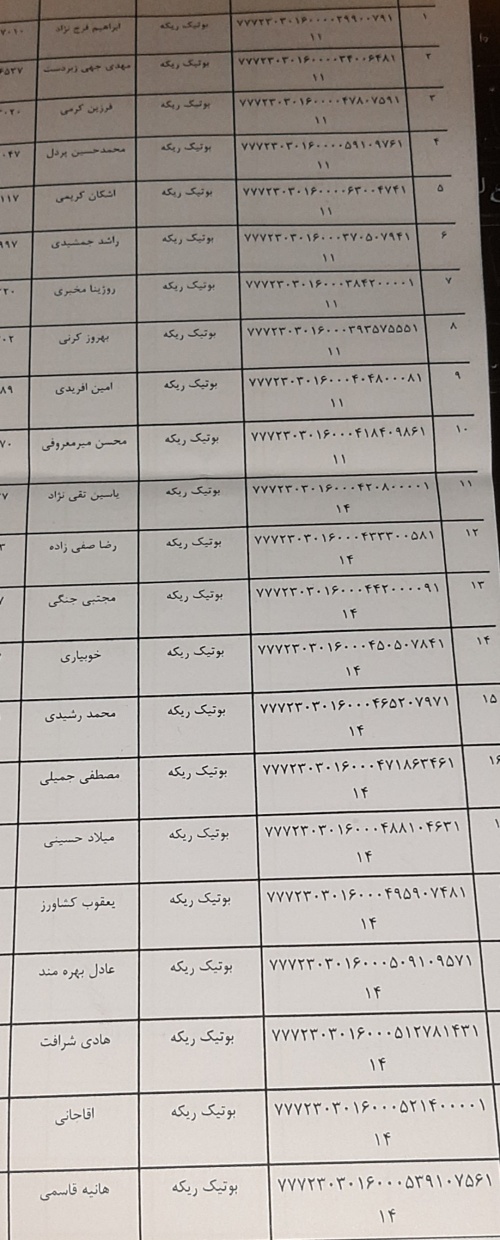 ۱ ۷۷۷۲۳۰۳۰۱۶۰۰۰۰۳۹۹۰۰۷۹۱ بوتیک ریکه ابراهیم فرج نژاد ۷۰۱۰
۱۱
۲ ۷۷۷۲۳۰۳۰۱۶۰۰۰۰۳۴۰۰۶۴۸۱ بوتیک ریکه مهدی جهی زبردست ۶۵۲۷
۱۱
۳ ۷۷۷۲۳۰۳۰۱۶۰۰۰۰۴۷۸۰۷۵۹۱ بوتیک ریکه فرزین کرمی ۰۲۰
۱۱
۴ ۷۷۷۲۳۰۳۰۱۶۰۰۰۰۵۹۱۰۹۷۶۱ بوتیک ریکه محمدحسین پردل ۰۴۷
۱۱
۵ ۷۷۷۲۳۰۳۰۱۶۰۰۰۰۶۳۰۰۴۷۴۱ بوتیک ریکه اشکان کریمی ۱۱۷
۱۱
۶ ۷۷۷۲۳۰۳۰۱۶۰۰۰۳۷۰۵۰۷۹۴۱ بوتیک ریکه راشد جمشیدی ۹۹۷
۱۱
۷ ۷۷۷۲۳۰۳۰۱۶۰۰۰۳۸۴۲۰۰۰۰۱ بوتیک ریکه روژینا مخبری ۲۲۰
۱۱
۸ ۷۷۷۲۳۰۳۰۱۶۰۰۰۳۹۳۵۷۵۵۵۱ بوتیک ریکه بهروز کرنی ۰۲
۱۱
۹ ۷۷۷۲۳۰۳۰۱۶۰۰۰۴۰۴۸۰۰۰۸۱ بوتیک ریکه امین افریدی ۸۹
۱۱
۱۰ ۷۷۷۲۳۰۳۰۱۶۰۰۰۴۱۸۴۰۹۸۶۱ بوتیک ریکه محسن میرمعروفی ۷۰
۱۱
۱۱ ۷۷۷۲۳۰۳۰۱۶۰۰۰۴۲۰۸۰۰۰۰۱ بوتیک ریکه یاسین تقی نژاد ۷
۱۴
۱۲ ۷۷۷۲۳۰۳۰۱۶۰۰۰۴۳۳۳۰۰۵۸۱ بوتیک ریکه رضا صفی زاده ۳
۱۴
۱۳ ۷۷۷۲۳۰۳۰۱۶۰۰۰۴۴۲۰۰۰۰۹۱ بوتیک ریکه مجتبی جنگی
۱۴
۱۴ ۷۷۷۲۳۰۳۰۱۶۰۰۰۴۵۰۵۰۷۸۴۱ بوتیک ریکه خوبیاری
۱۴
۱۵ ۷۷۷۲۳۰۳۰۱۶۰۰۰۴۶۵۲۰۷۹۷۱ بوتیک ریکه محمد رشیدی
۱۴
۱۶ ۷۷۷۲۳۰۳۰۱۶۰۰۰۴۷۱۸۶۳۴۶۱ بوتیک ریکه مصطفی جمیلی
۱۴
۱ ۷۷۷۲۳۰۳۰۱۶۰۰۰۴۸۸۱۰۴۶۳۱ بوتیک ریکه میلاد حسینی
۱۴
۷۷۷۲۳۰۳۰۱۶۰۰۰۴۹۵۹۰۷۴۸۱ بوتیک ریکه یعقوب کشاورز
۱۴
۷۷۷۲۳۰۳۰۱۶۰۰۰۵۰۹۱۰۹۵۷۱ بوتیک ریکه عادل بهره مند
۱۴
۷۷۷۲۳۰۳۰۱۶۰۰۰۵۱۲۷۸۱۴۳۱ بوتیک ریکه هادی شرافت
۱۴
۷۷۷۲۳۰۳۰۱۶۰۰۰۵۲۱۴۰۰۰۰۱ بوتیک ریکه اقاجانی
۱۴
۷۷۷۲۳۰۳۰۱۶۰۰۰۵۳۹۱۰۷۵۶۱ بوتیک ریکه هانیه قاسمی
۱۴